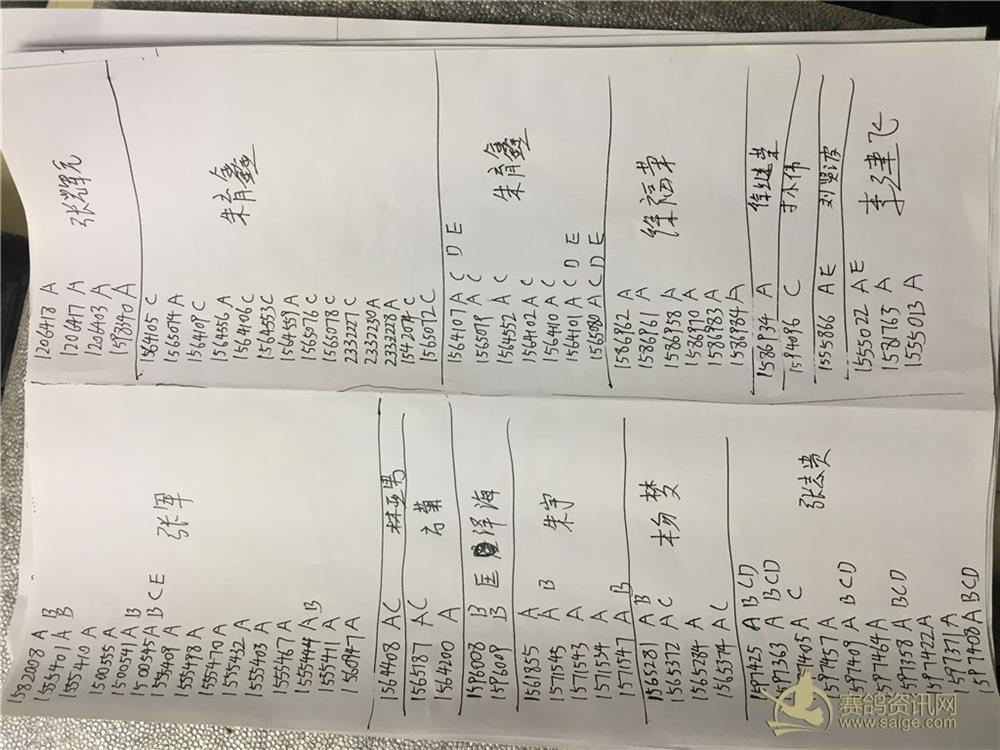 1582808 A B
1555401 A B
1555410 A
1500555 A
1500541 A B
1500545 A B C E
1555409 A
1555478 A
张军
1555470 A
1555432 A
1555403 A
1555467 A
1555444 A B
1555441 A
1560947 A
1564408 A C 林亚男
1565187 A C
1564200 A
1596008 B
1596009 B 匡泽海
1561855 A
1571545 A B
1571543 A 朱宇
1571534 A
1571547 A B
1565281 A B
1565372 A C 杨梦
1565284 A
1565374 A C
1597425 A B C D
1597363 A B C D
1597405 A C
1597457 A 张志贵
1597409 A B C D
1597464 A
1597358 A B C D
1597422 A
1597371 A
1597408 A B C D
1206478 A
1206477 A
1206403 A
1593140 A
1564105 C
1565094 A
1564109 C
1564556 A
1564106 C 朱育鑫
1564553 C
1564559 A
1565076 C
1565078 C
2332227 C
2332230 A
2332228 A
1542074 C
1565072 C
1564107 A C D E
1565079 A C
1564552 A C 朱育鑫
1564102 A C
1564110 A C
1564101 A C D E
1565080 A C D E
1586962 A
1586961 A
1586958 A 徐福革
1586970 A
1586983 A
1586984 A
1586934 A 徐继荣
1594096 C 于小伟
1555866 A E 刘贤波
1555022 A E
1581763 A 李建飞
1555013 A
赛鸽资讯网
www.saige.com